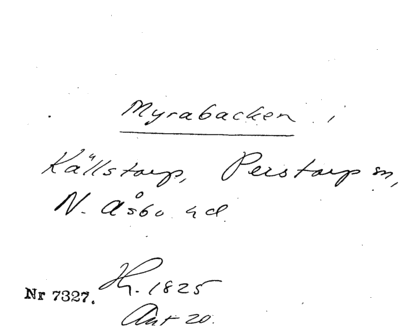 Myrabacken i
Källstorp, Perstorp sn,
N. Åsbo hd
Nr 7327. Hh. 1825
Ant 20.